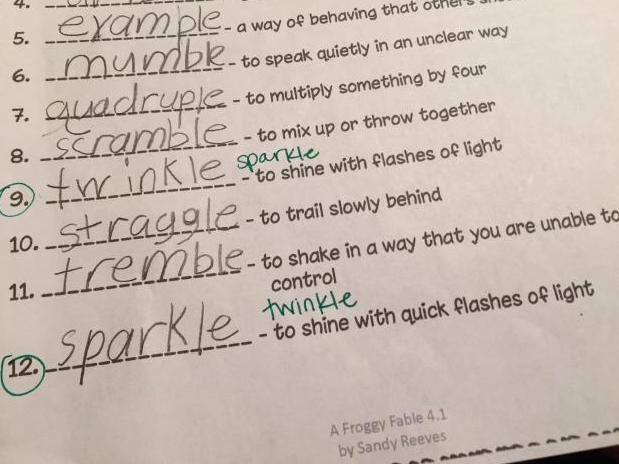 4.
5. example - a way of behaving that others
6. mumble - to speak quietly in an unclear way
7. quadruple - to multiply something by four
8. scramble - to mix up or throw together
sparkle
9. twinkle - to shine with flashes of light
10. straggle - to trail slowly behind
11. tremble - to shake in a way that you are unable to
control
twinkle
12. sparkle - to shine with quick flashes of light
A Froggy Fable 4.1
by Sandy Reeves